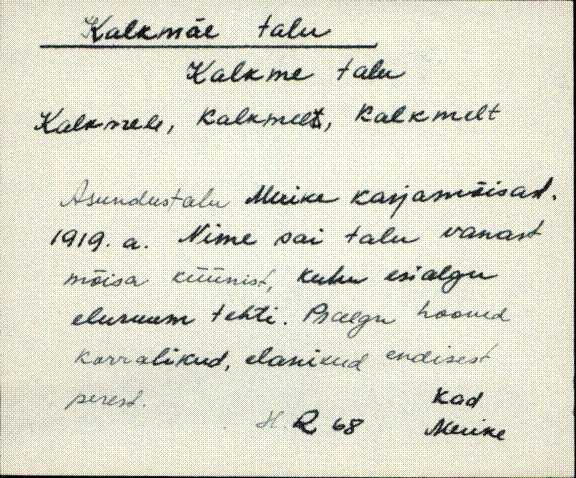 Kalkmäe talu
Kalkme talu
Kalkmele, Kalkmelt, Kalkmelt
Asundustalu Meiike karjamõisad.
1919. a. Nime sai talu vanast
mõisa küünist, kuhu esialgu
eluruum tehti. Praegu hooned
korralikud, elanikud endisest
perest.
Kad
H. R 68 Meiike